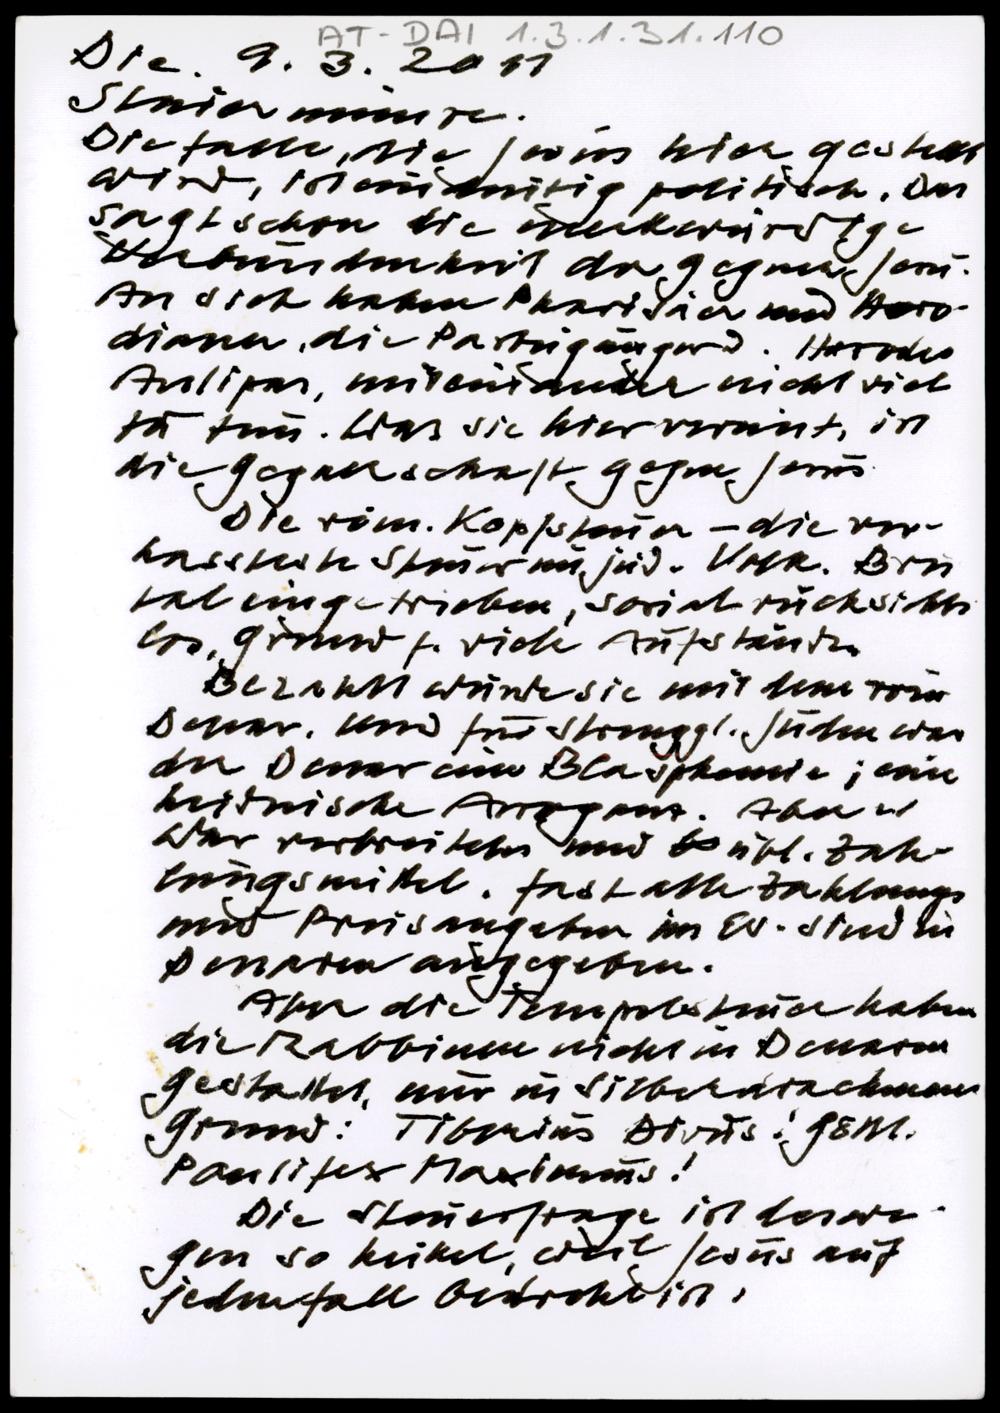 AT-DAI 1.3.1.31.110
Die. 9. 3. 2011
Steuermünze.
Die Falle, die Jesus hier gestellt
wird, ist eindeutig politisch. Das
sagt schon die merkwürdige
Verbundenheit der Gegner Jesu.
An sich haben Pharisäer und Hero-
dianer, die Parteigänger d. Herodes
Antipas, miteinander nicht viel
zu tun. Was sie hier vereint, ist
die Gegnerschaft gegen Jesus
Die röm. Kopfsteuer – die ver-
hassteste Steuer im jüd. Volk. Bru
tal eingetrieben, sozial rücksichts
los, Grund f. viele Aufstände.
Bezahlt wurde sie mit dem röm
Denar. Und für strenggl. Juden war
der Denar eine Blasphemie; eine
heidnische Arroganz. Aber er
war verbreitetes und übl. Zah-
lungsmittel. Fast alle Zahlungs
und Preisangaben im Ev. sind in
Denaren angegeben.
Aber die Tempelsteuer haben
die Rabbinen nicht in Denaren
gestattet, nur in Silberdrachmen
Grund: Tiberius Divus! göttl.
Pontifex Maximus!
Die Steuerfrage ist deswe-
gen so heikel, weil Jesus auf
jedenfall bedroht ist.